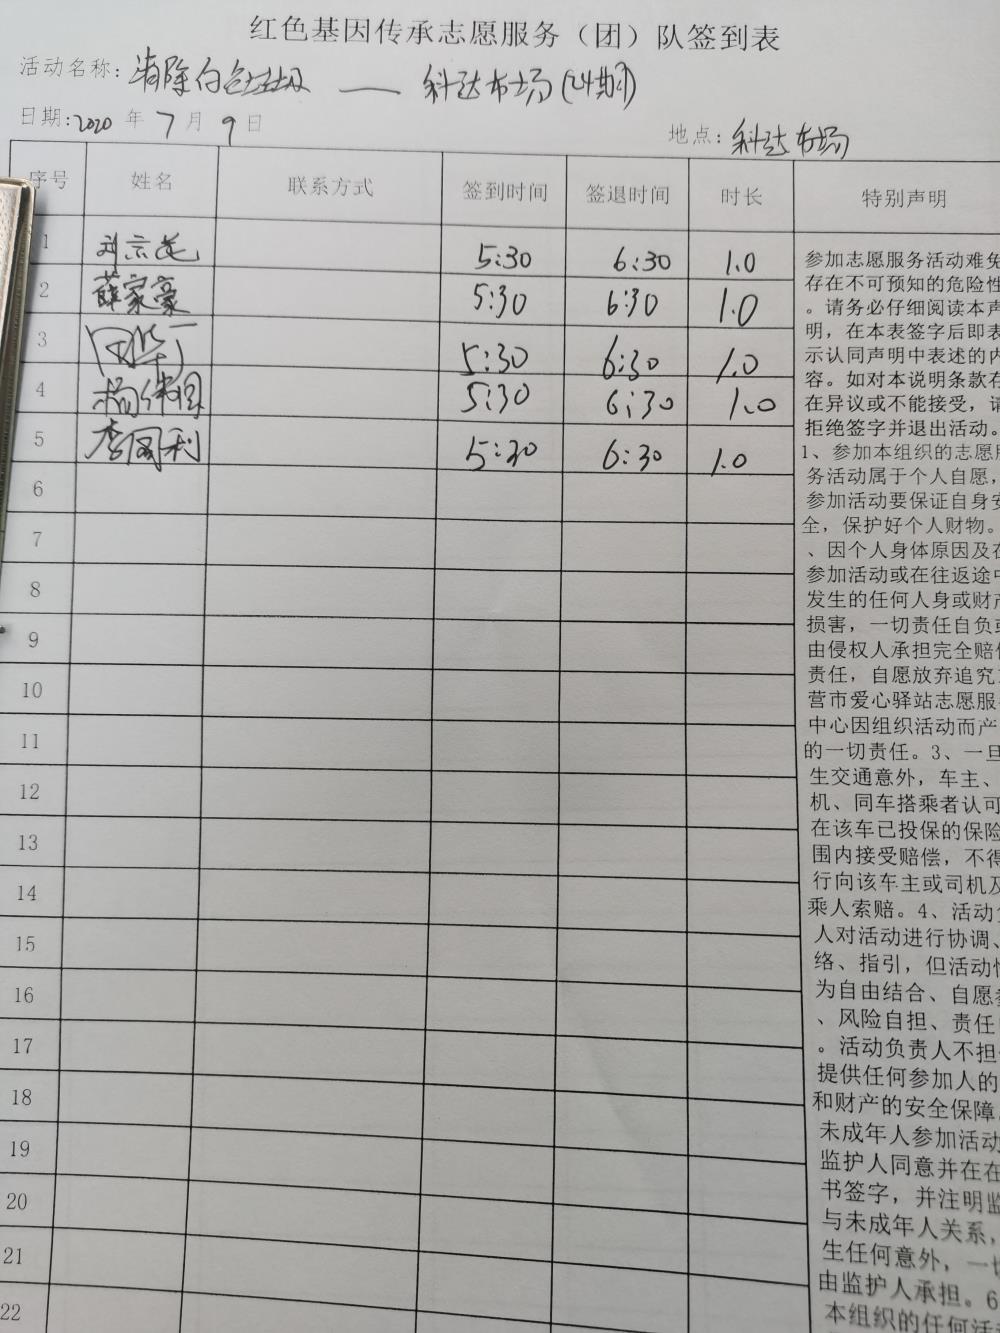 红色基因传承志愿服务（团）队签到表
活动名称：消除白色垃圾 —— 科达市场(24期)
日期:2020 年 7 月 9 日
地点：科达市场
序号 姓名 联系方式 签到时间 签退时间 时长 特别声明
1 5:30 6:30 1.0
2 薛家豪 5:30 6:30 1.0
3 5:30 6:30 1.0
4 5:30 6:30 1.0
5 李国利 5:30 6:30 1.0
6
7
8
9
10
11
12
13
14
15
16
17
18
19
20
21
22
参加志愿服务活动难免
存在不可预知的危险性
。请务必仔细阅读本声
明，在本表签字后即表
示认同声明中表述的内
容。如对本说明条款存
在异议或不能接受，请
拒绝签字并退出活动。
1、参加本组织的志愿服
务活动属于个人自愿，
参加活动要保证自身安
全，保护好个人财物。
、因个人身体原因及在
参加活动或在往返途中
发生的任何人身或财产
损害，一切责任自负或
由侵权人承担完全赔偿
责任，自愿放弃追究
营市爱心驿站志愿服
中心因组织活动而产
的一切责任。3、一旦
生交通意外，车主、
机、同车搭乘者认可
在该车已投保的保险
围内接受赔偿，不得
行向该车主或司机及
乘人索赔。4、活动负
人对活动进行协调、
络、指引，但活动性
为自由结合、自愿参
、风险自担、责任
。活动负责人不担
提供任何参加人的
和财产的安全保障
未成年人参加活动
监护人同意并在在
书签字，并注明监
与未成年人关系，
生任何意外，一切
由监护人承担。6
本组织的任何活